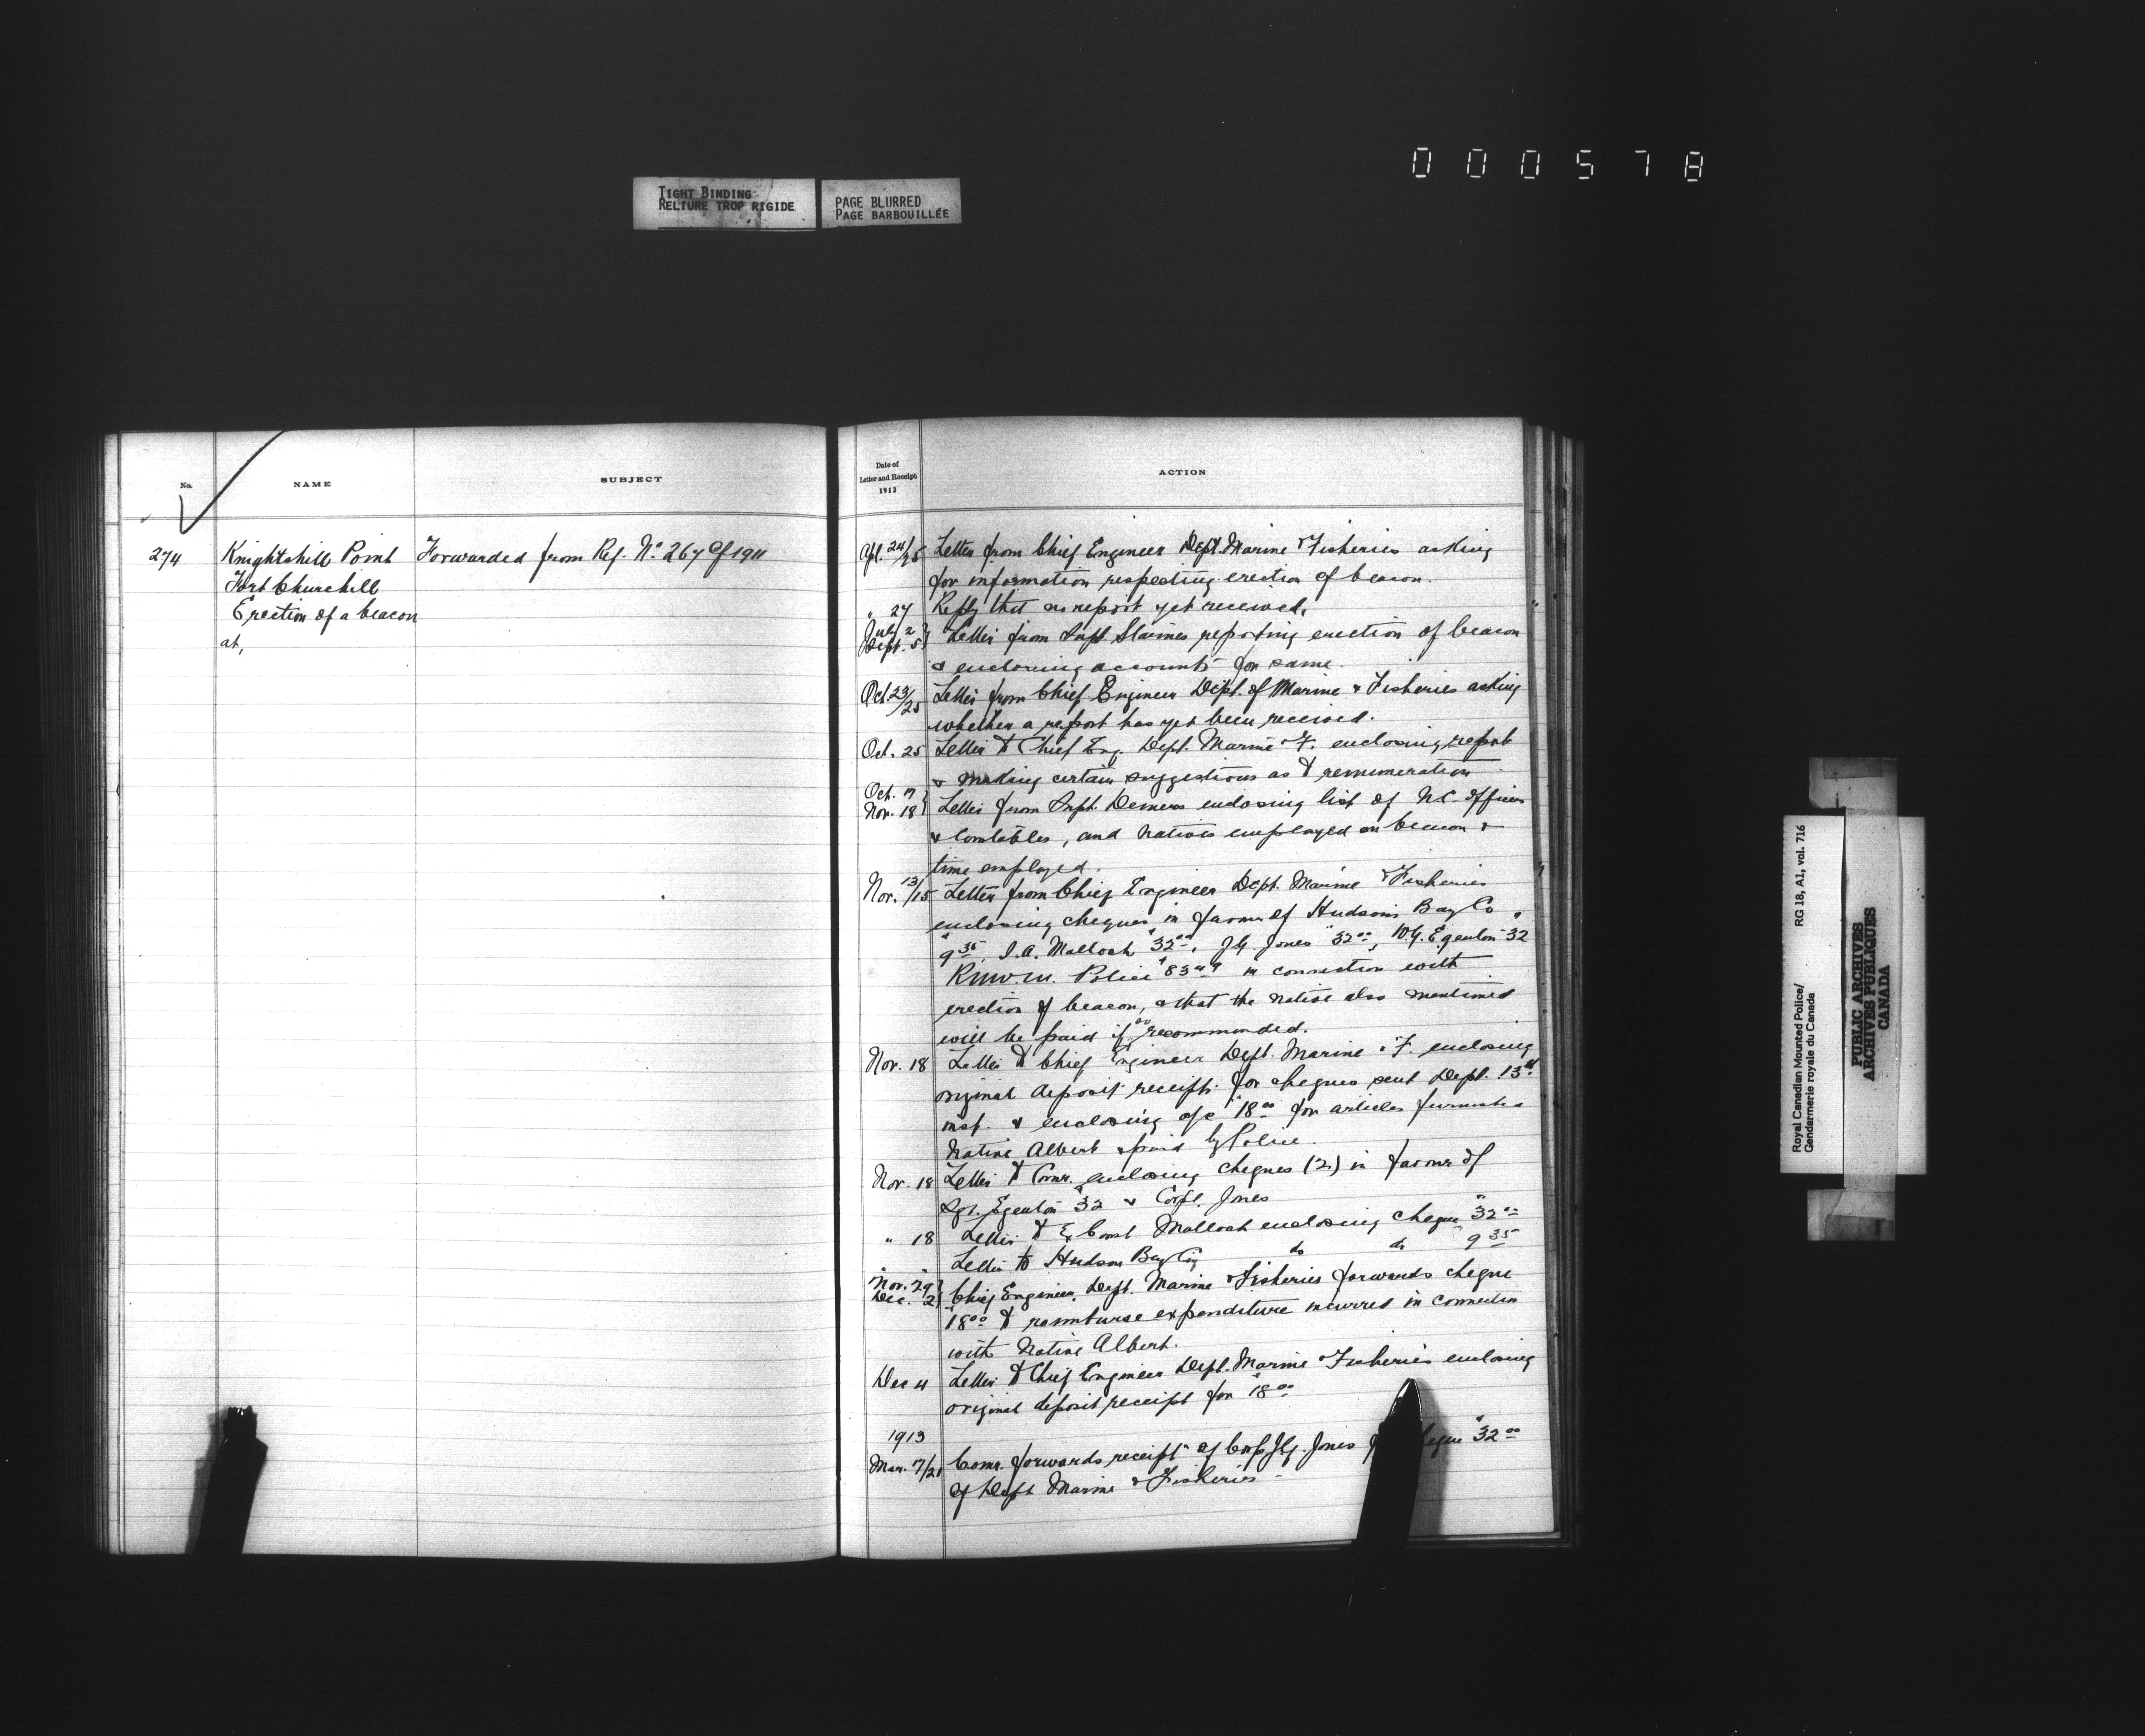 000578
TIGHT BINDING
RELIURE TROP RIGIDE
PAGE BLURRED
PAGE BARBOUILLÉE
No.
NAME
SUBJECT
274
Knightshill Point
Fort Churchill
Erection of a beacon
at,
Forwarded from Ref. No. 267 of 1911
Date of
Letter and Receipt
1912
ACTION
Apl. 24/25 Letter from Chief Engineer Dept. Marine & Fisheries asking
for information respecting erection of beacon.
" 27 Reply that no report yet received.
July 2
Sept. 5 } Letter from Supt. Starnes reporting erection of beacon
& enclosing accounts for same.
Oct. 23/25 Letter from Chief Engineer Dept. of Marine & Fisheries asking
whether a report has yet been received.
Oct. 25 Letter to Chief Eng. Dept. Marine & F. enclosing report
& making certain suggestions as to remuneration
Oct. 7
Nov. 18 } Letter from Inspt. Demers enclosing list of N.C. Officers
& Constables, and natives employed on beacon &
time employed.
Nov. 13/15 Letter from Chief Engineer Dept. Marine & Fisheries
enclosing cheques in favour of Hudson's Bay Co
$9.35, I.A. Malloch $32.00, J.G. Jones $32.00, W.G. Egenton 32
R.N.W.M. Police $83.49 in connection with
erection of beacon, & that the native also mentioned
will be paid if so recommended.
Nov. 18 Letter to Chief Engineer Dept. Marine & F. enclosing
original deposit receipt for cheques sent Dept. 13th
inst. & enclosing a/c $18.00 for articles furnished
native Albert & paid by Police.
Nov. 18 Letter to Comr. enclosing cheques (2) in favour of
Sgt. Egenton $32 & Corpl. Jones
" 18 Letter to Ex Const Malloch enclosing cheque $32.00
" " Letter to Hudson Bay Coy do do 9.35
Nov. 29
Dec. 2 } Chief Engineer, Dept. Marine & Fisheries forwards cheque
$18.00 to reimburse expenditure incurred in connection
with native Albert.
Dec 4 Letter to Chief Engineer Dept. Marine & Fisheries enclosing
original deposit receipt for $18.00
1913
Mar. 7/21 Comr. forwards receipt of Corp J.G. Jones cheque $32.00
of Dept Marine & Fisheries -
Royal Canadian Mounted Police/
Gendarmerie royale du Canada
RG 18, A1, vol. 716
PUBLIC ARCHIVES
ARCHIVES PUBLIQUES
CANADA